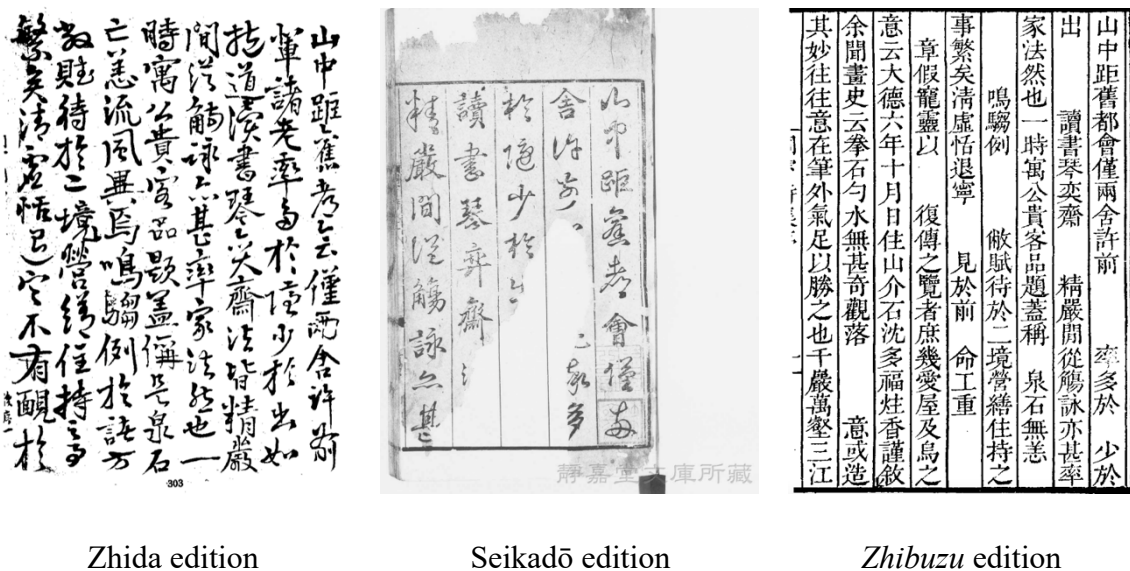 山中距舊都會僅兩舍許前
輩諸老率多於隱少於出如
書琴奕齋法皆精嚴
間從觴詠亦甚率家法然也一
時寓公貴客品題蓋稱是泉石
亡恙流風異焉鳴騶例於諸方
敝賦待於二境營繕住持之事
繁矣清虛恬退寧不有靦於
303
山中距舊都會僅兩
舍許前 率多
於隱少於出
讀書琴弈齋
精嚴間從觴詠亦甚
靜嘉堂文庫所藏
山中距舊都會僅兩舍許前 率多於 少於
出 讀書琴奕齋 精嚴閒從觴詠亦甚率
家法然也一時寓公貴客品題蓋稱 泉石無恙
鳴騶例 敝賦待於二境營繕住持之
事繁矣清虛恬退寧 見於前 命工重
章假寵靈以 復傳之覽者庶幾愛屋及烏之
意云大德六年十月日住山介石沈多福炷香謹敘
余聞畫史云拳石勺水無甚奇觀落 意或造
其妙往往意在筆外氣足以勝之也千巖萬壑三江
Zhida edition
Seikadō edition
Zhibuzu edition